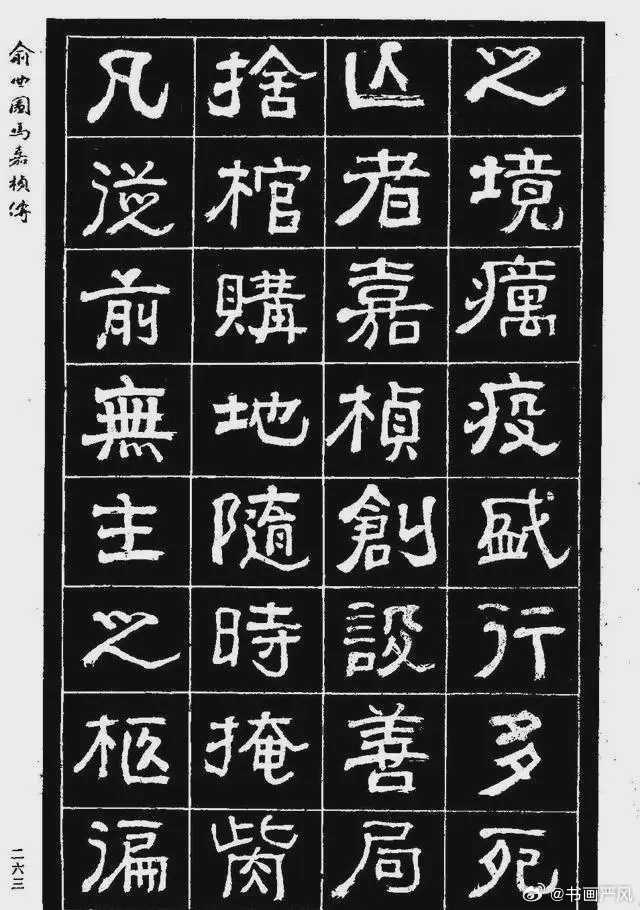 之境癘疫盛行多死
亾者嘉楨創設善局
捨棺購地隨時掩骴
凡從前無主之柩徧
俞曲園馬嘉楨傳
二六三
@书画严风